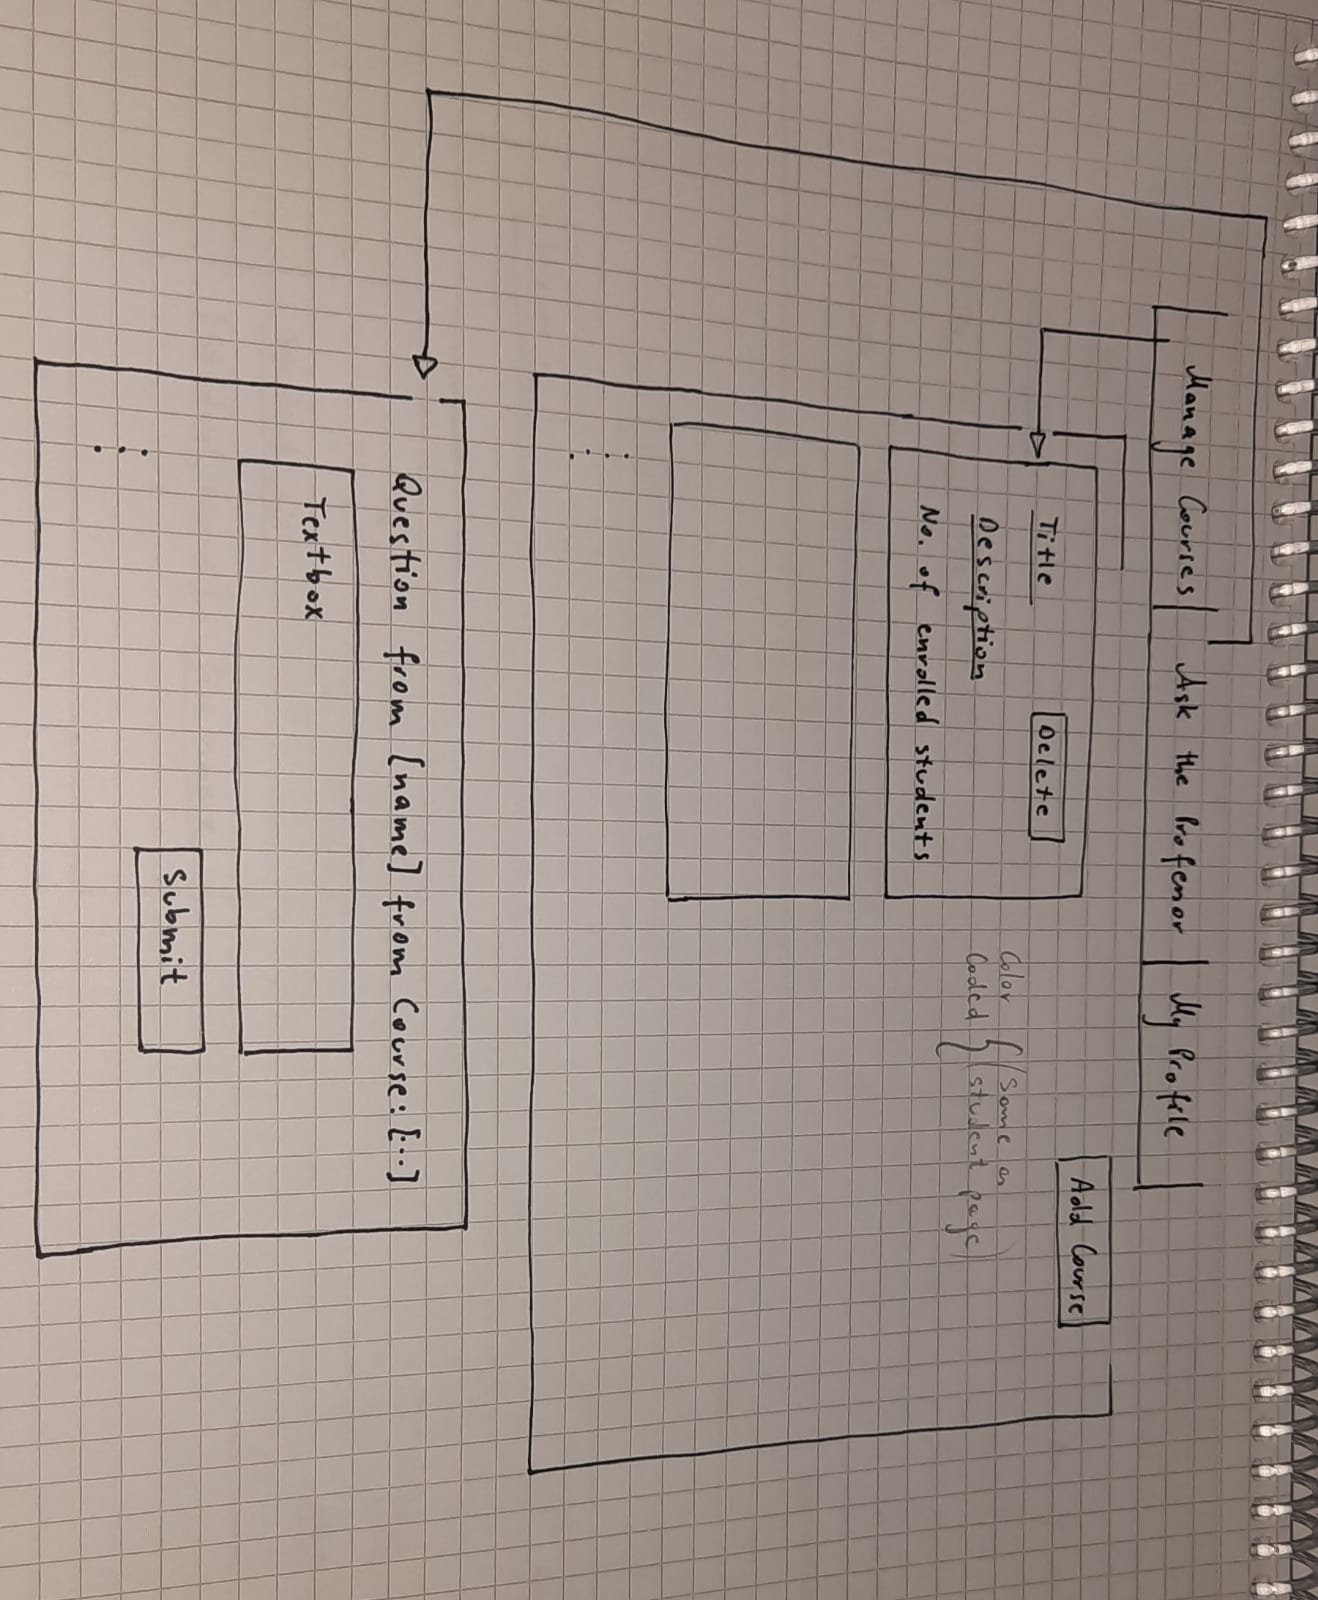 Manage Courses
Ask the Professor
My Profile
Add Course
Title
Delete
Description
No. of enrolled students
Color
Coded
(Same as
student page)
Question from [name] from Course: [...]
Textbox
Submit